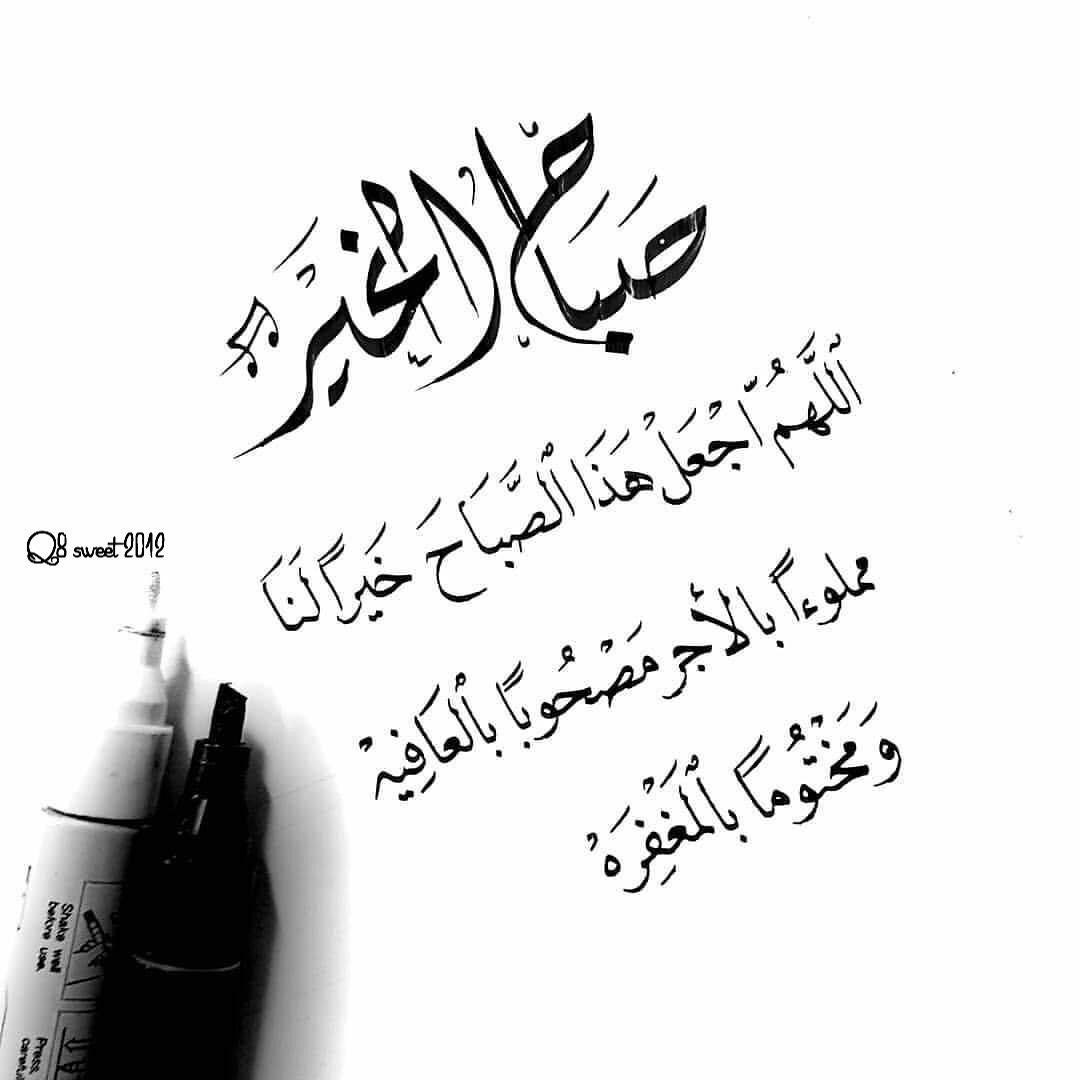 صباح الخير
ٱللَّهُمَّ ٱجْعَلْ هَذَا ٱلصَّبَاحَ خَيرًا لَنَا
مملوءاً بالأجر مَصْحُوبًا بٱلعَافِيَهْ
وَمَخْتُومًا بٱلْمَغْفِرَهْ
Q8 sweet 2012
Shake well
before use
Press